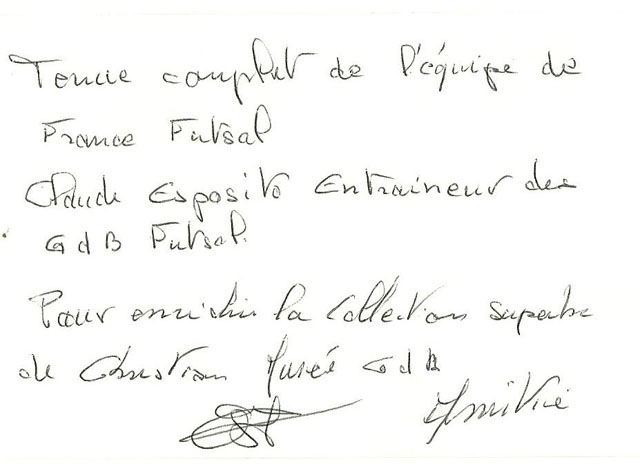 Tenue complet de l'équipe de
France Futsal
Claude Esposito Entraineur des
G d B Futsal.
Pour enrichir la collection superbe
de Christian Musée G d B
Amitié